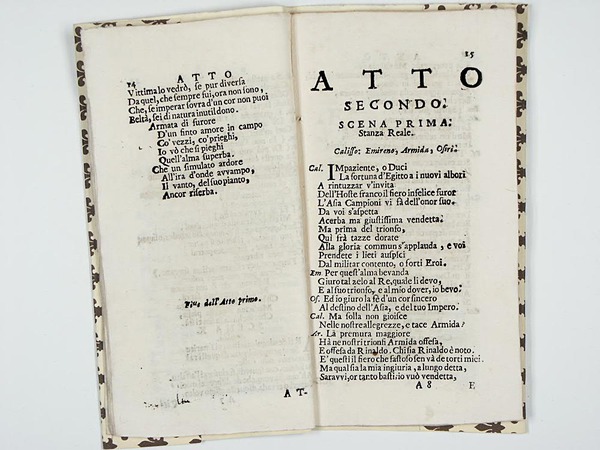 14 ATTO
Vittima lo vedrò, se pur diversa
Da quel, che sempre fui, ora non sono,
Che, se imperar sovra d'un cor non puoi
Beltà, sei di natura inutil dono.
Armata di furore
D'un finto amore in campo
Co' vezzi, co' prieghi,
Io vò che si pieghi
Quell'alma superba.
Che un simulato ardore
All'ira d'onde avvampo,
Il vanto, del suo pianto,
Ancor riserba.
Fine dell'Atto primo.
A T-
15
ATTO
SECONDO.
SCENA PRIMA.
Stanza Reale.
Califfo: Emireno, Armida, Osiri.
Cal. IMpaziente, o Duci
La fortuna d'Egitto a i nuovi albori
A rintuzzar v'invita
Dell'Hoste franco il fiero infelice furor
L'Asia Campioni vi fà dell'onor suo.
Da voi s'aspetta
Acerba ma giustissima vendetta.
Ma prima del trionfo,
Qui frà tazze dorate
Alla gloria commun s'applauda, e voi
Prendete i lieti auspici
Dal militar contento, o forti Eroi.
Em Per quest'alma bevanda
Giuro tal zelo al Re, quale li devo,
E al suo trionfo, e al mio dover, io bevo.
Os. Ed io giuro la fè d'un cor sincero
Al destino dell'Asia, e del tuo Impero.
Cal. Ma folla non gioisce
Nelle nostre allegrezze, e tace Armida?
Ar. Là premura maggiore
Hà ne nostri trionfi Armida offesa,
E offesa da Rinaldo. Chi sia Rinaldo è noto.
E' questi il fiero che fastoso sen và de torti miei.
Ma qual sia la mia ingiuria, a lungo detta,
Saravvi, or tanto basti: io vuò vendetta,
A 8 E